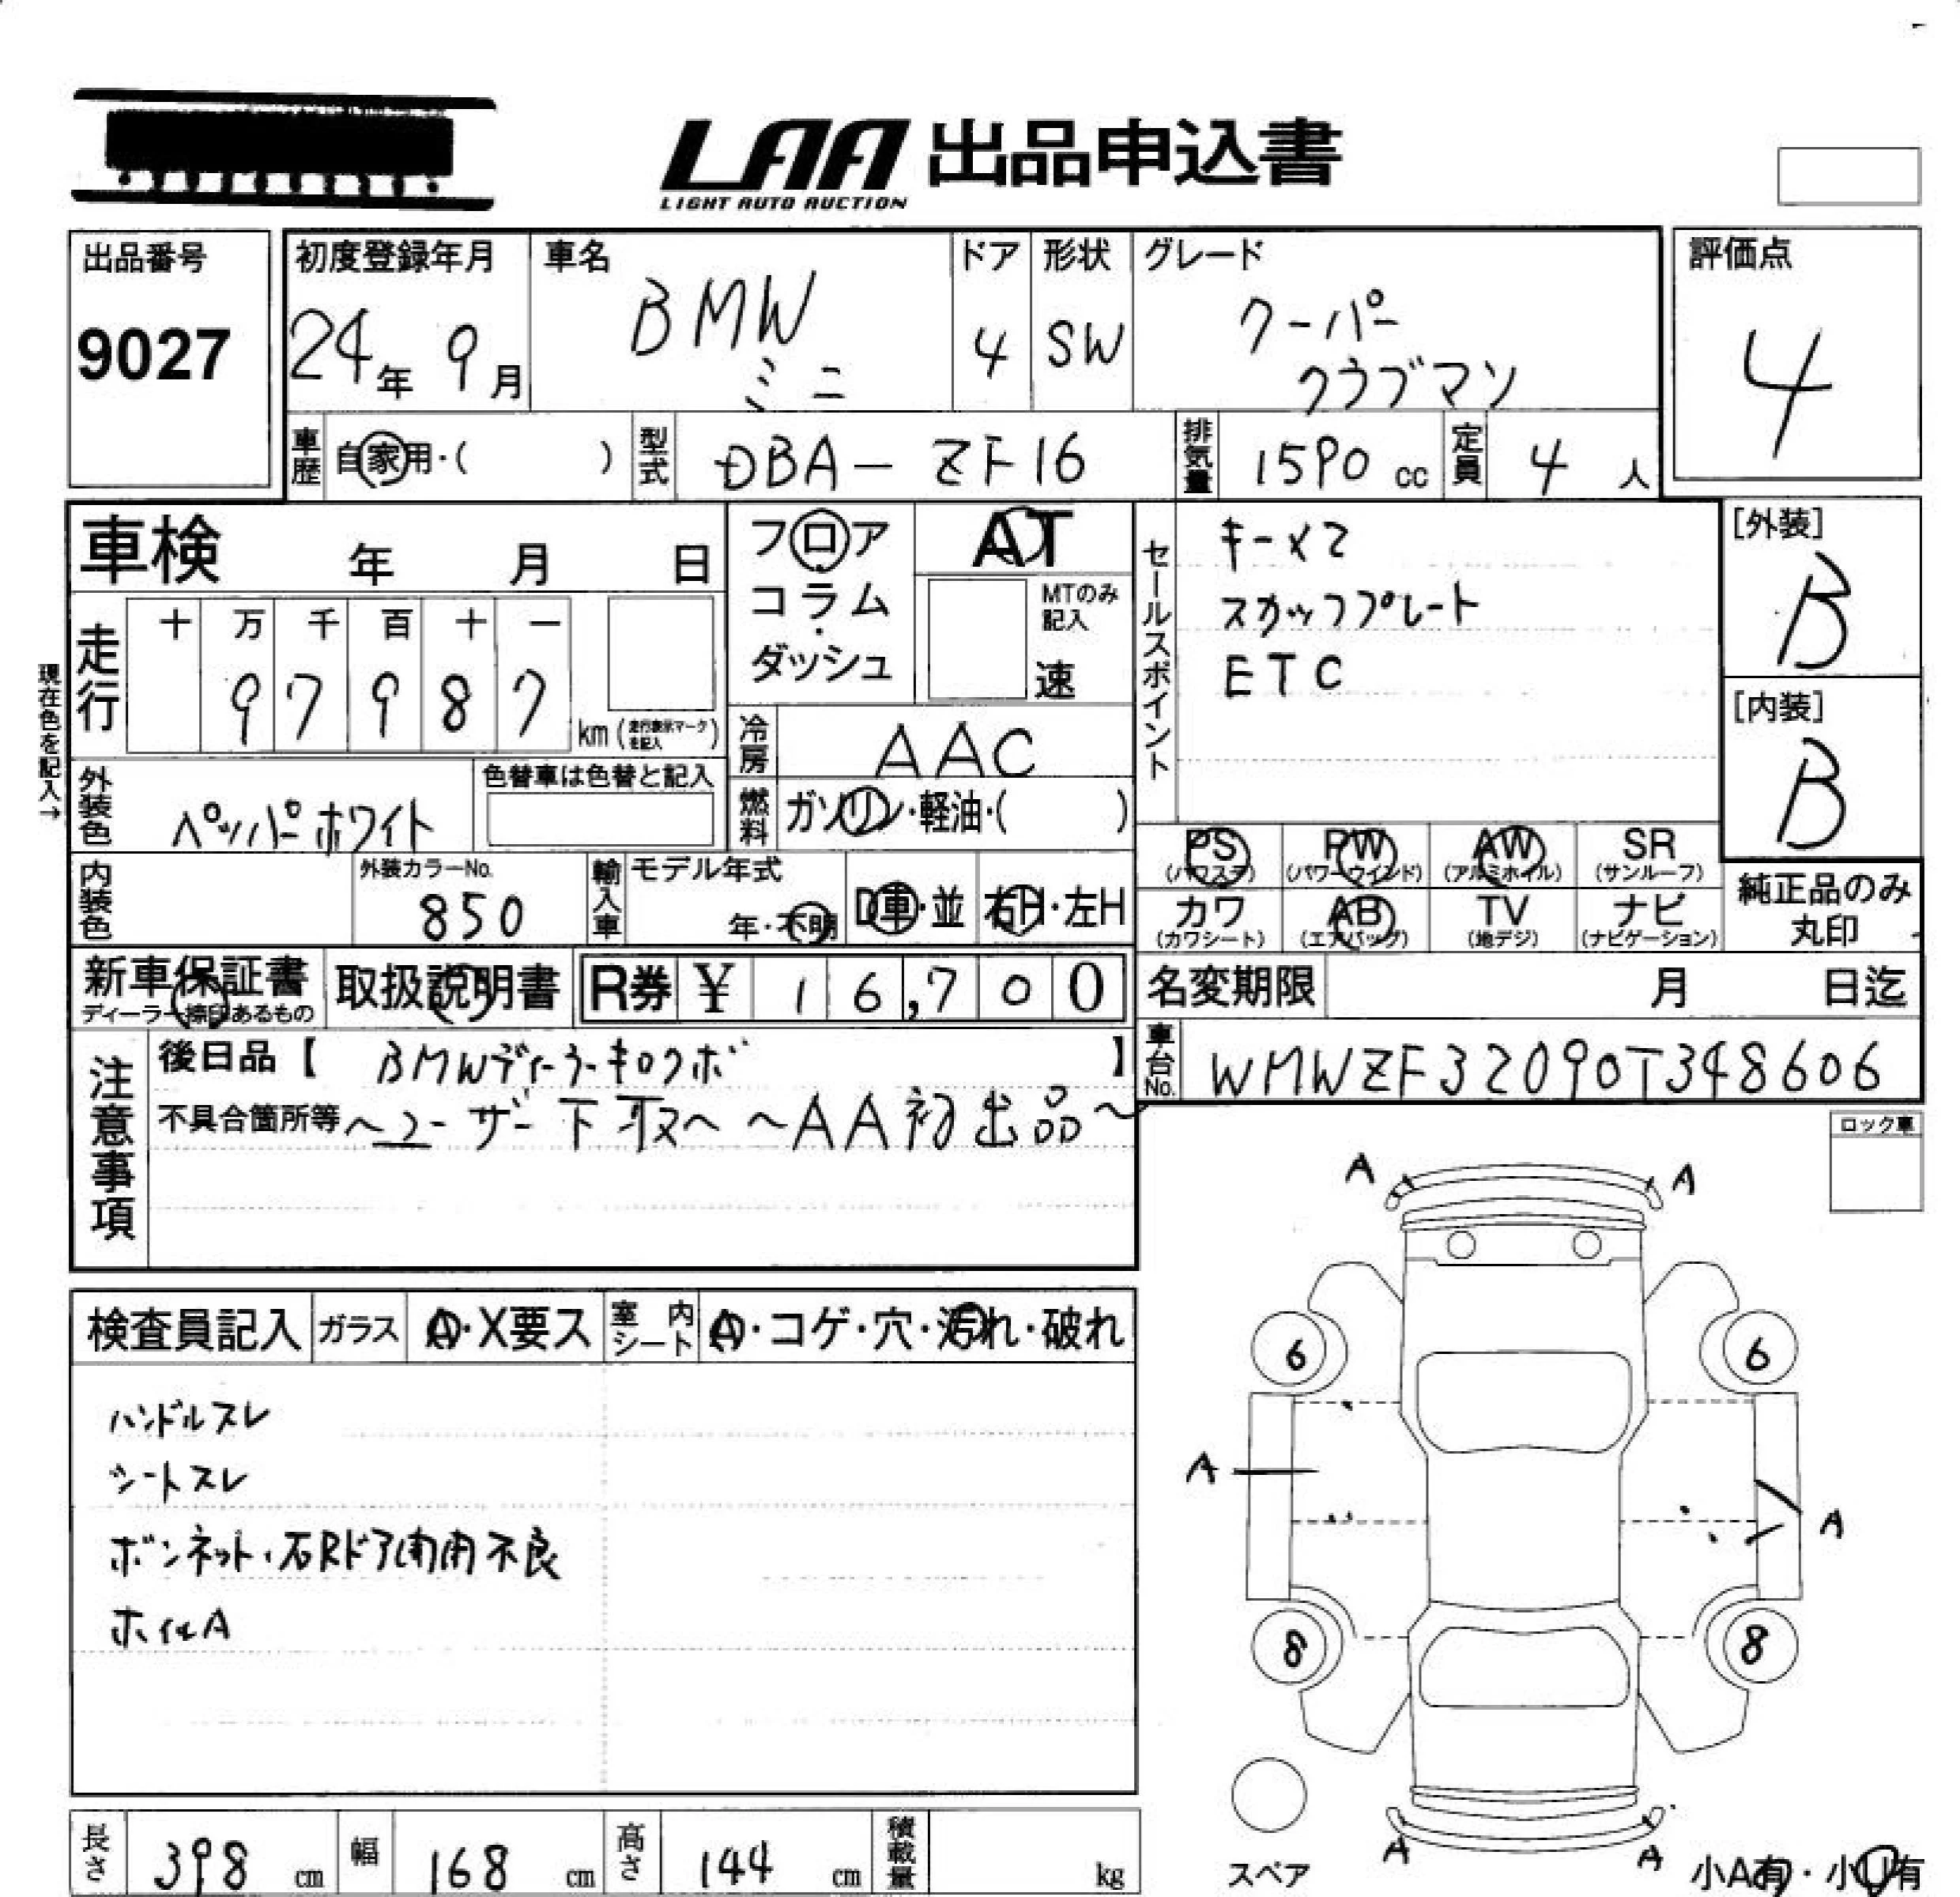 LAA 出品申込書
LIGHT AUTO AUCTION
出品番号
9027
初度登録年月
24年 9月
車名
BMW
ミニ
ドア
4
形状
SW
グレード
クーパー
クラブマン
評価点
4
車歴
自家用・( )
型式
DBA-ZF16
排気量
1590 cc
定員
4 人
車検 年 月 日
走行
十 万 千 百 十 一
9 7 9 8 7
km(走行表示マークを記入)
現在色を記入→
フロア
・
コラム
・
ダッシュ
AT
MTのみ
記入
速
冷房
AAC
燃料
ガソリン・軽油・( )
セールスポイント
キーメ2
スカッフプレート
ETC
[外装]
B
[内装]
B
外装色
ペッパーホワイト
色替車は色替と記入
内装色
外装カラーNo.
850
輸入車
モデル年式
年・不明
D車・並
右H・左H
PS
(パワステ)
PW
(パワーウインド)
AW
(アルミホイル)
SR
(サンルーフ)
カワ
(カワシート)
AB
(エアバッグ)
TV
(地デジ)
ナビ
(ナビゲーション)
純正品のみ
丸印
新車保証書
ディーラー捺印あるもの
取扱説明書
R券 ¥ 16,700
名変期限 月 日迄
車台No.
WMWZF32090T348606
注意事項
後日品【 BMWディーラーキロクボ 】
不具合箇所等 〜ユーザー下取〜 〜AA初出品〜
ロック車
検査員記入
ガラス
A・X要ス
室内
シート
A・コゲ・穴・汚れ・破れ
ハンドルスレ
シートスレ
ボンネット・右Rドア開閉不良
ホイルA
A A
6 6
A
A
8 8
A A
スペア
小A有・小U有
長さ
398 cm
幅
168 cm
高さ
144 cm
積載量
kg